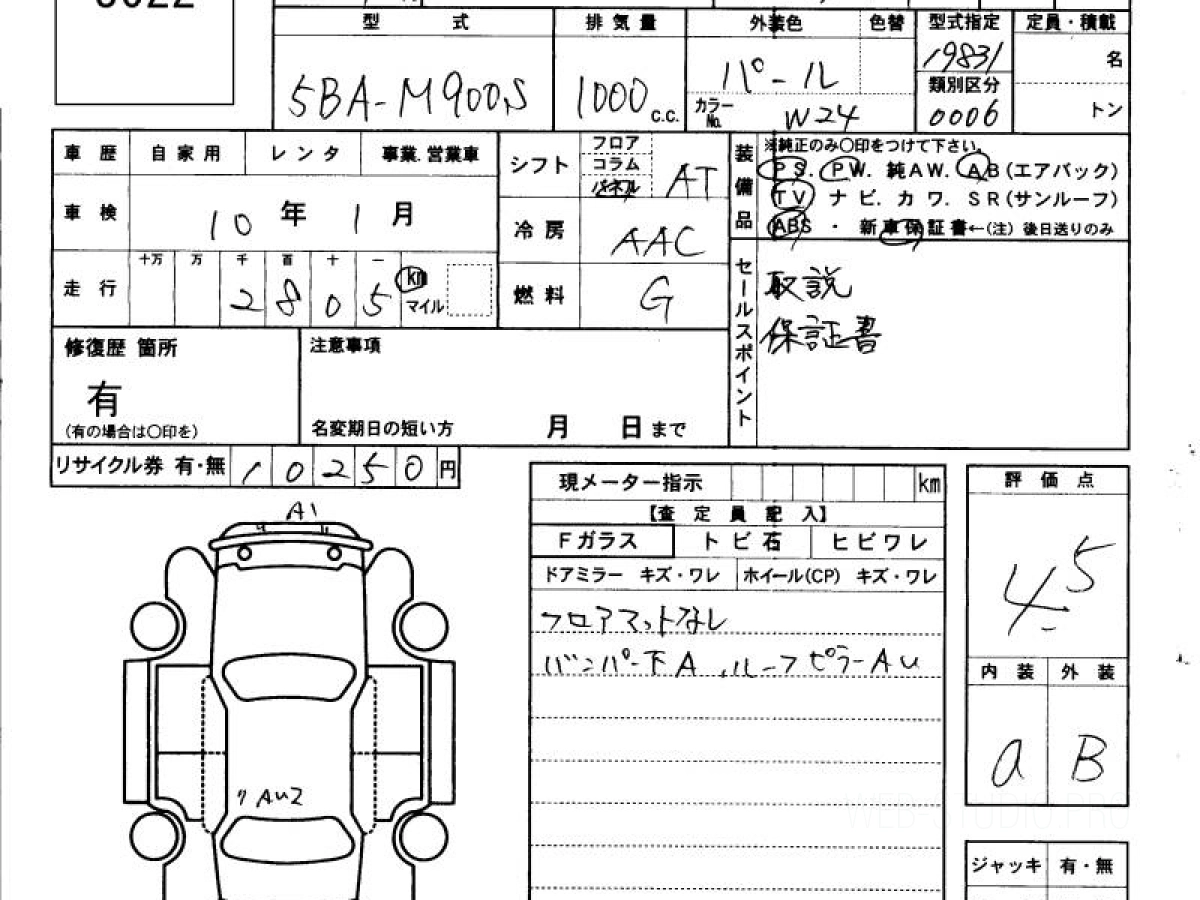 型 式 排気量 外装色 色替 型式指定 定員・積載
5BA-M900S 1000 c.c. パール 19831 名
カラーNo. W24 類別区分 0006 トン
車歴 自家用 レンタ 事業.営業車
車検 10年 1月
十万 万 千 百 十 一
走行 2805 km マイル
シフト フロア コラム パネル AT
冷房 AAC
燃料 G
装備品 ※純正のみ〇印をつけて下さい。
PS. PW. 純AW. AB(エアバック)
TV ナビ. カワ. SR(サンルーフ)
ABS ・ 新車保証書←(注) 後日送りのみ
セールスポイント 取説
保証書
修復歴 箇所
有
(有の場合は〇印を)
注意事項
名変期日の短い方 月 日まで
リサイクル券 有・無 10250円
A1
AU2
現メーター指示 km
【査定員記入】
Fガラス トビ石 ヒビワレ
ドアミラー キズ・ワレ ホイール(CP) キズ・ワレ
フロアマットなし
バンパー下A、ルーフピラーAU
評価点
4.5
内装 外装
a B
ジャッキ 有・無
WEB-STUDIO.PRO